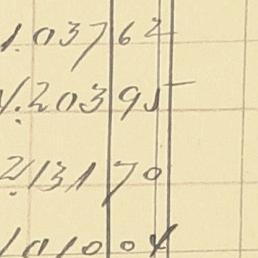 1.03762
4.20395
2.13170
1.01004